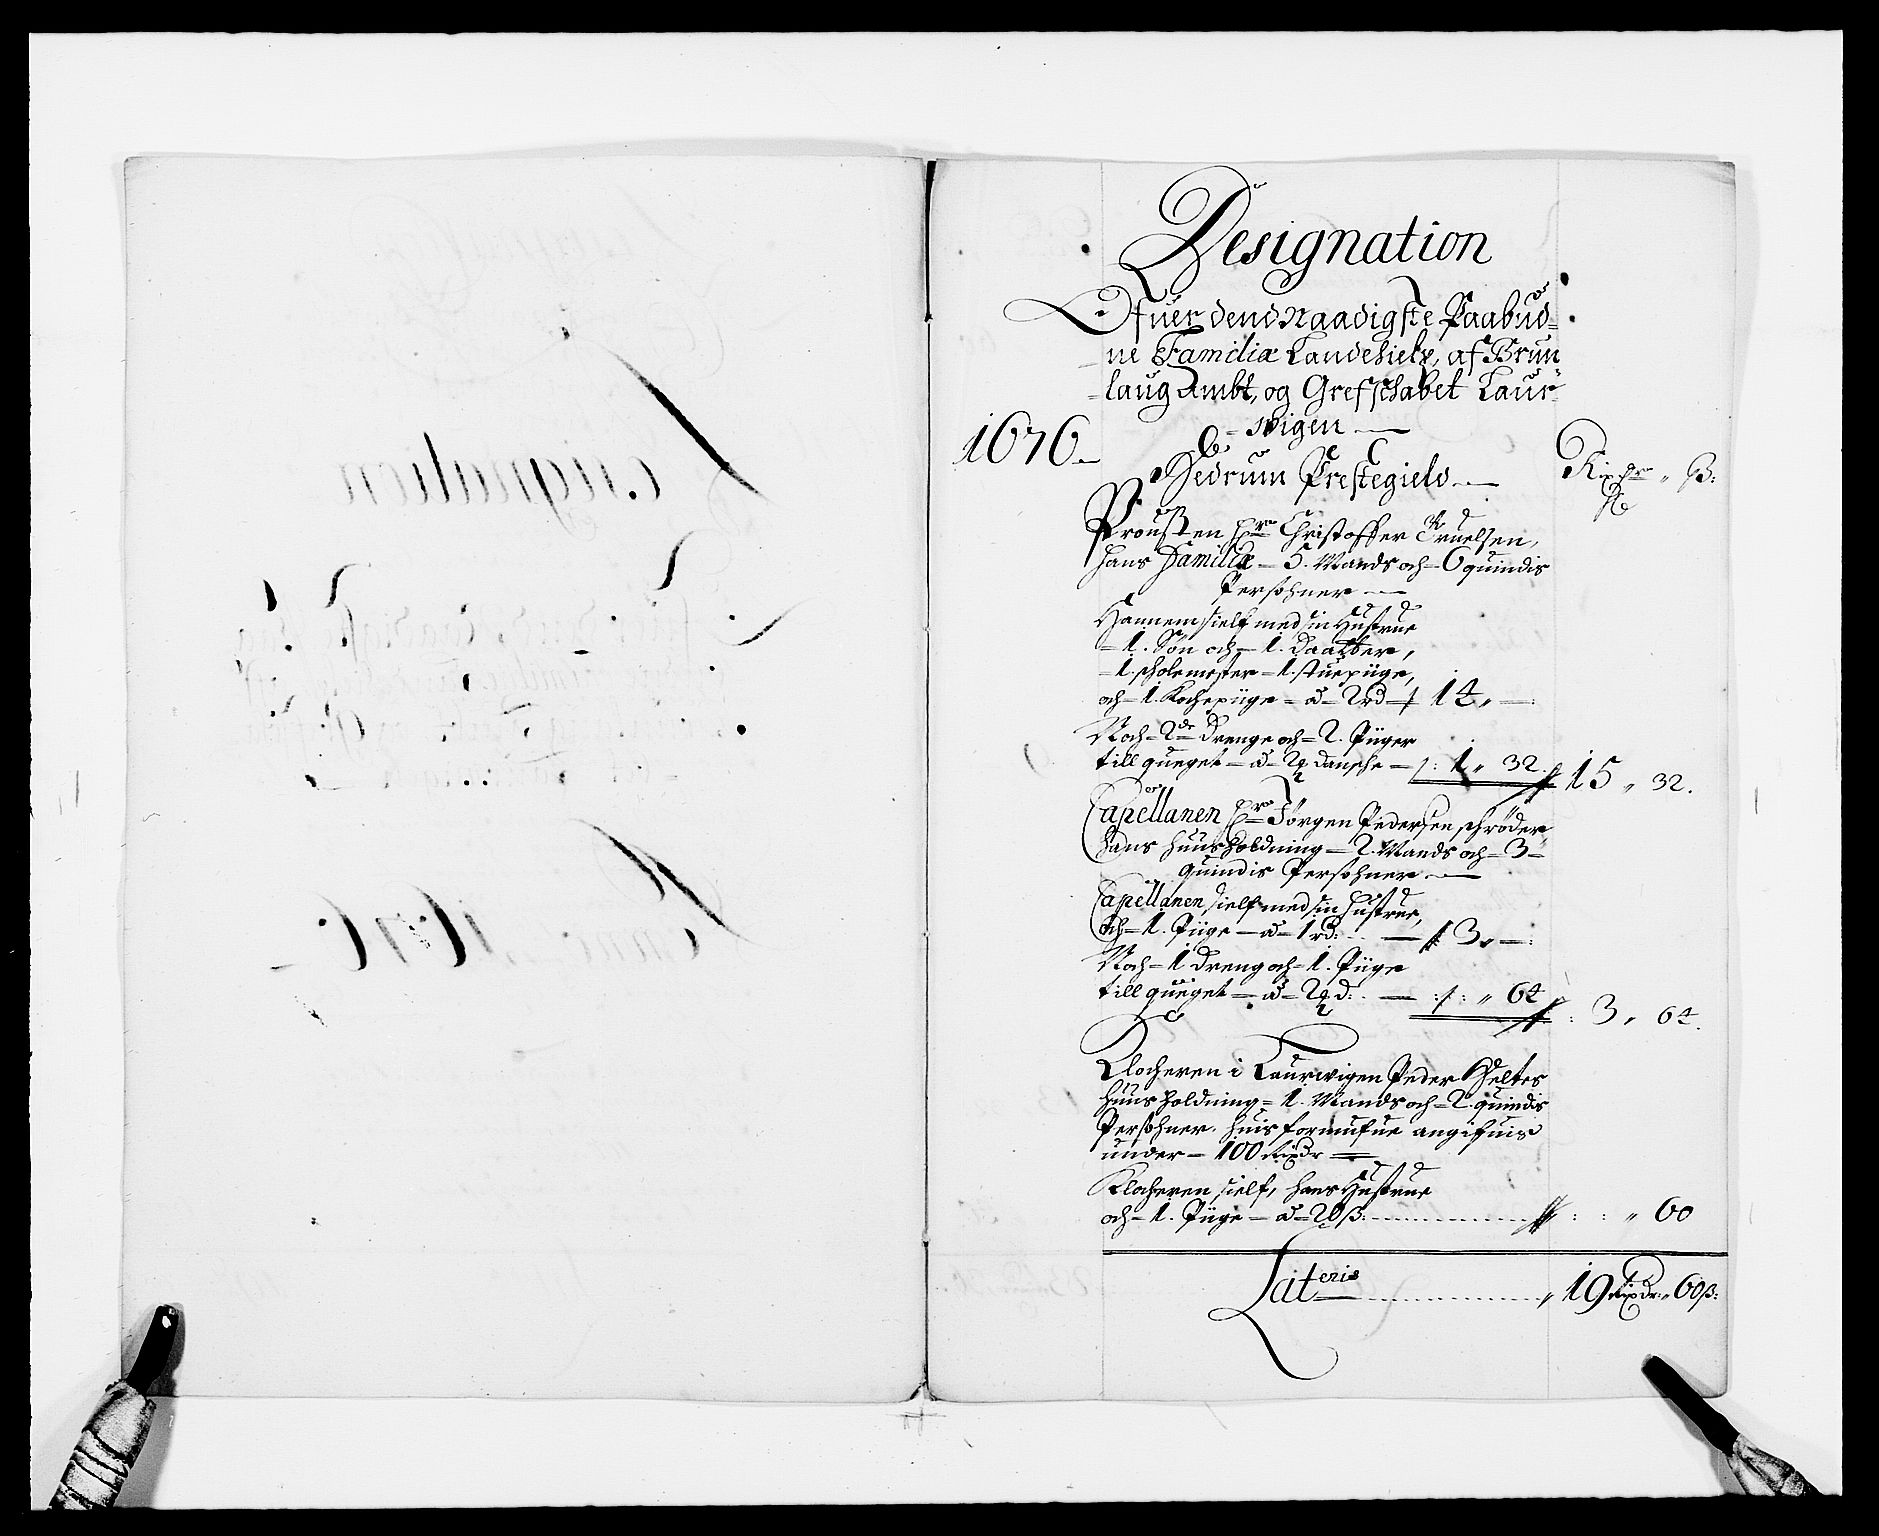 Designation
Ofuer dend Naadigste Paabud=
ne Familiæ Landehielp, af Brun
laug Ambt, og Grefschabet Laur=
=vigen
1676
Hedrum Prestegield
Rixdr " ß:
Proufsten Hr Christoffer Truelsen,
hans Familiæ – 5. Mands och – 6 quindis
Persohner
Hannem sielf med sin Hustrue
– 1. Søn och – 1. Daatter,
– 1. scholemester – 1. stuepiige,
och – 1. Kochepiige – ad – 2 rd – 14 " – :
Noch – 2de Drenge och – 2. Piiger
till queget – a – 2 danske – 1 " 32. 15 " 32.
Capellanen Hr Jörgen Pedersen schrøder
hans huusholdning – 2. Mands och – 3 –
quindis Persohner
Capellanen sielf med sin hustrue,
och – 1. Piige – ad – 1 rd: – 3 " – :
Noch – 1 Dreng och – 1. Piige
till queget – ad – 2 d: – " 64 3 " 64.
Klocheren i Laurwigen Peder Heltes
huusholdning – 1. Mands och – 2 quindis
Persohner. huis formufue angifuis
under – 100 Rixdr
Klocheren sielf, hans Hustrue
och – 1. Piige – ad – 20 ß: " 60
Lateris " 19 Rixdr: " 60 ß: